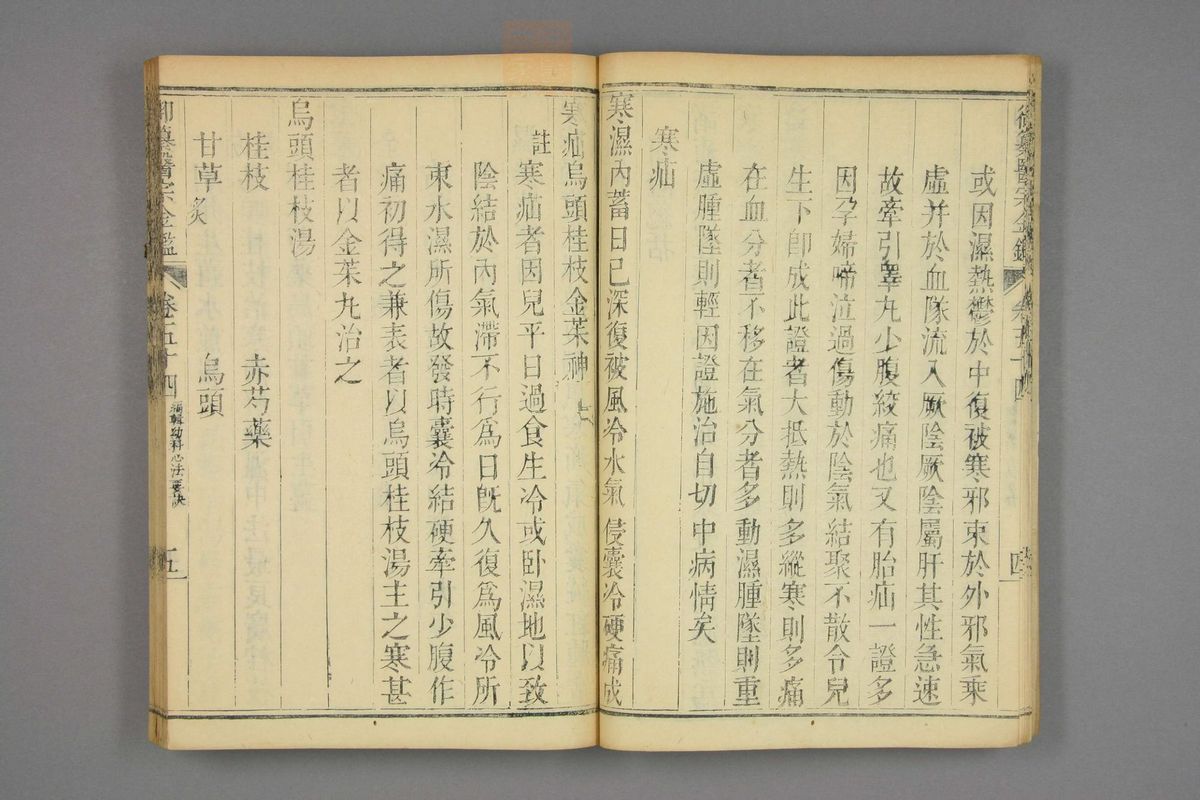 御纂醫宗金鑑 卷五十四 四
或因濕熱鬱於中復被寒邪束於外邪氣乘
虛并於血隊流入厥陰厥陰屬肝其性急速
故牽引睪丸少腹絞痛也又有胎疝一證多
因孕婦啼泣過傷動於陰氣結聚不散令兒
生下卽成此證者大抵熱則多縱寒則多痛
在血分者不移在氣分者多動濕腫墜則重
虛腫墜則輕因證施治自切中病情矣
寒疝
寒濕內蓄日已深復被風冷水氣侵囊冷硬痛成
寒疝烏頭桂枝金茱神
註寒疝者因兒平日過食生冷或卧濕地以致
陰結於內氣滯不行爲日旣久復爲風冷所
束水濕所傷故發時囊冷結硬牽引少腹作
痛初得之兼表者以烏頭桂枝湯主之寒甚
者以金茱丸治之
烏頭桂枝湯
桂枝 赤芍藥
甘草炙 烏頭
御纂醫宗金鑑 卷五十四 編輯幼科心法要訣 五